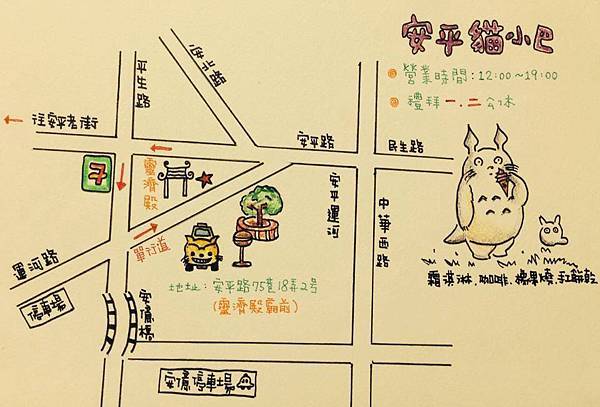 安平貓小巴
營業時間：12:00～19:00
禮拜一.二公休
平生路
安北路
往安平老街
安平路
民生路
7
靈濟殿
單行道
安平運河
中華西路
運河路
停車場
安億橋
地址：安平路75巷18弄2号
(靈濟殿廟前)
霜淇淋.咖啡.糖果燒.手工餅乾
安億停車場